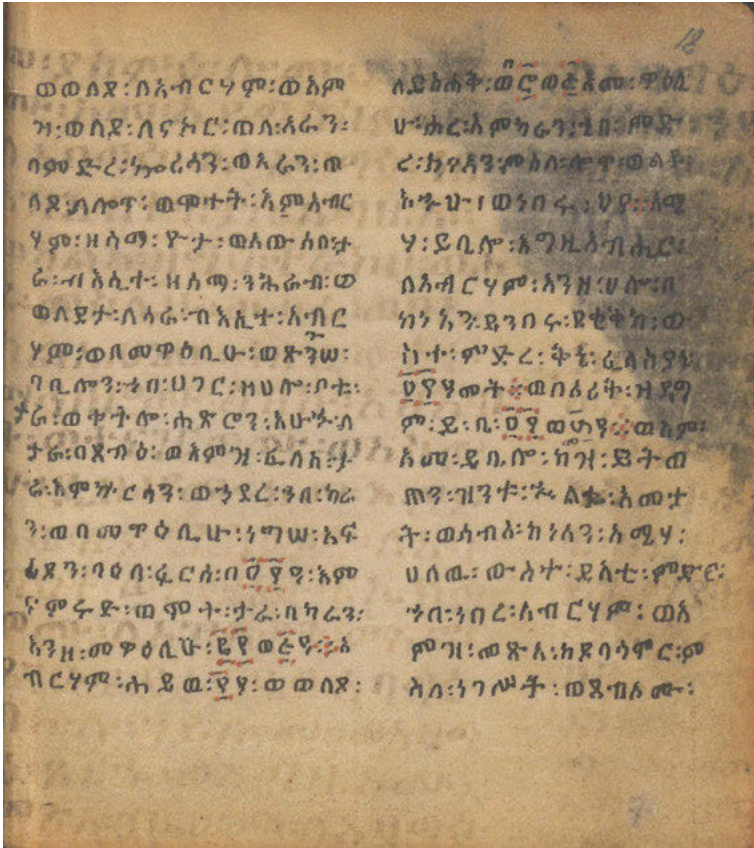 ወወለደ፡በአብርሃም፡ወእም
ዝ፡ወለደ፡ለናኦር፡ወለአራን፡
ባምድረ፡ወአራን፡ወ
ለደ፡ለሎጥ፡ወሞተት፡እምአብር
ሃም፡ዘስማ፡ዮታ፡ወአውሰበ፡ታ
ራ፡ብእሲተ፡ዘስማ፡ንሕራብ፡ወ
ወለደታ፡ለሳራ፡ብእሲተ፡አብር
ሃም፡ወበመዋዕሊሁ፡ወጽንሠ፡
ባቢሎን፡ኀበ፡ሀገር፡ዘሀሎ፡ቦቱ፡
ታራ፡ወቀትሎ፡ሐጽሮን፡እሁኁ፡ለ
ታራ፡በጸብዕ፡ወእምዝ፡ፈለሰ፡ታ
ራ፡ወኃደረ፡ኀበ፡ካራ
ን፡ወበመዋዕሊሁ፡ነግሠ፡አፍ
ሪደን፡ባዕለ፡ፈርስ፡እም
ኖምሩድ፡ወሞት፡ታራ፡በካራን፡
እንዘ፡መዋዕሊሁ፡፪፻ወ፭ዓ፡አ
ብርሃም፡ሐይወ፡፻ሃ፡ወወለደ፡
ለይስሐቅ፡ዋዕሊ
ሁ፡ሐረ፡እምካራን፡ኀበ፡ምድ
ረ፡ከነዓን፡ምስለ፡ሎጥ፡ወልደ፡
እኁሁ፡ወነበሩ፡ህየ፡አሜ
ሃ፡ይቢሎ፡እግዚአብሔር፡
በአብርሃም፡እንዘ፡ሀሎ፡በ
ከነአን፡ይነብሩ፡ደቂቅከ፡ው
ስተ፡ምድረ፡ቅኔ፡ፈላስያነ፡
፬፻ሃመት፡ወበፊሪት፡ዝዳግ
ም፡ይቢ፡፬፻ወ፴ዓ፡ወእም፡
አመ፡ይቢሎ፡ከዝ፡ይትወ
ጠን፡ዝንቱ፡ኊልቈ፡አመታ
ት፡ወሰብአ፡ከነአን፡አሜሃ፡
ሀለዉ፡ውስተ፡ይእቲ፡ምድር፡
ኀበ፡ነበረ፡አብርሃም፡ወእ
ምዝ፡መጽአ፡ከደባሳሞር፡ም
ስለ፡ነገሥት፡ወጸብአሙ፡